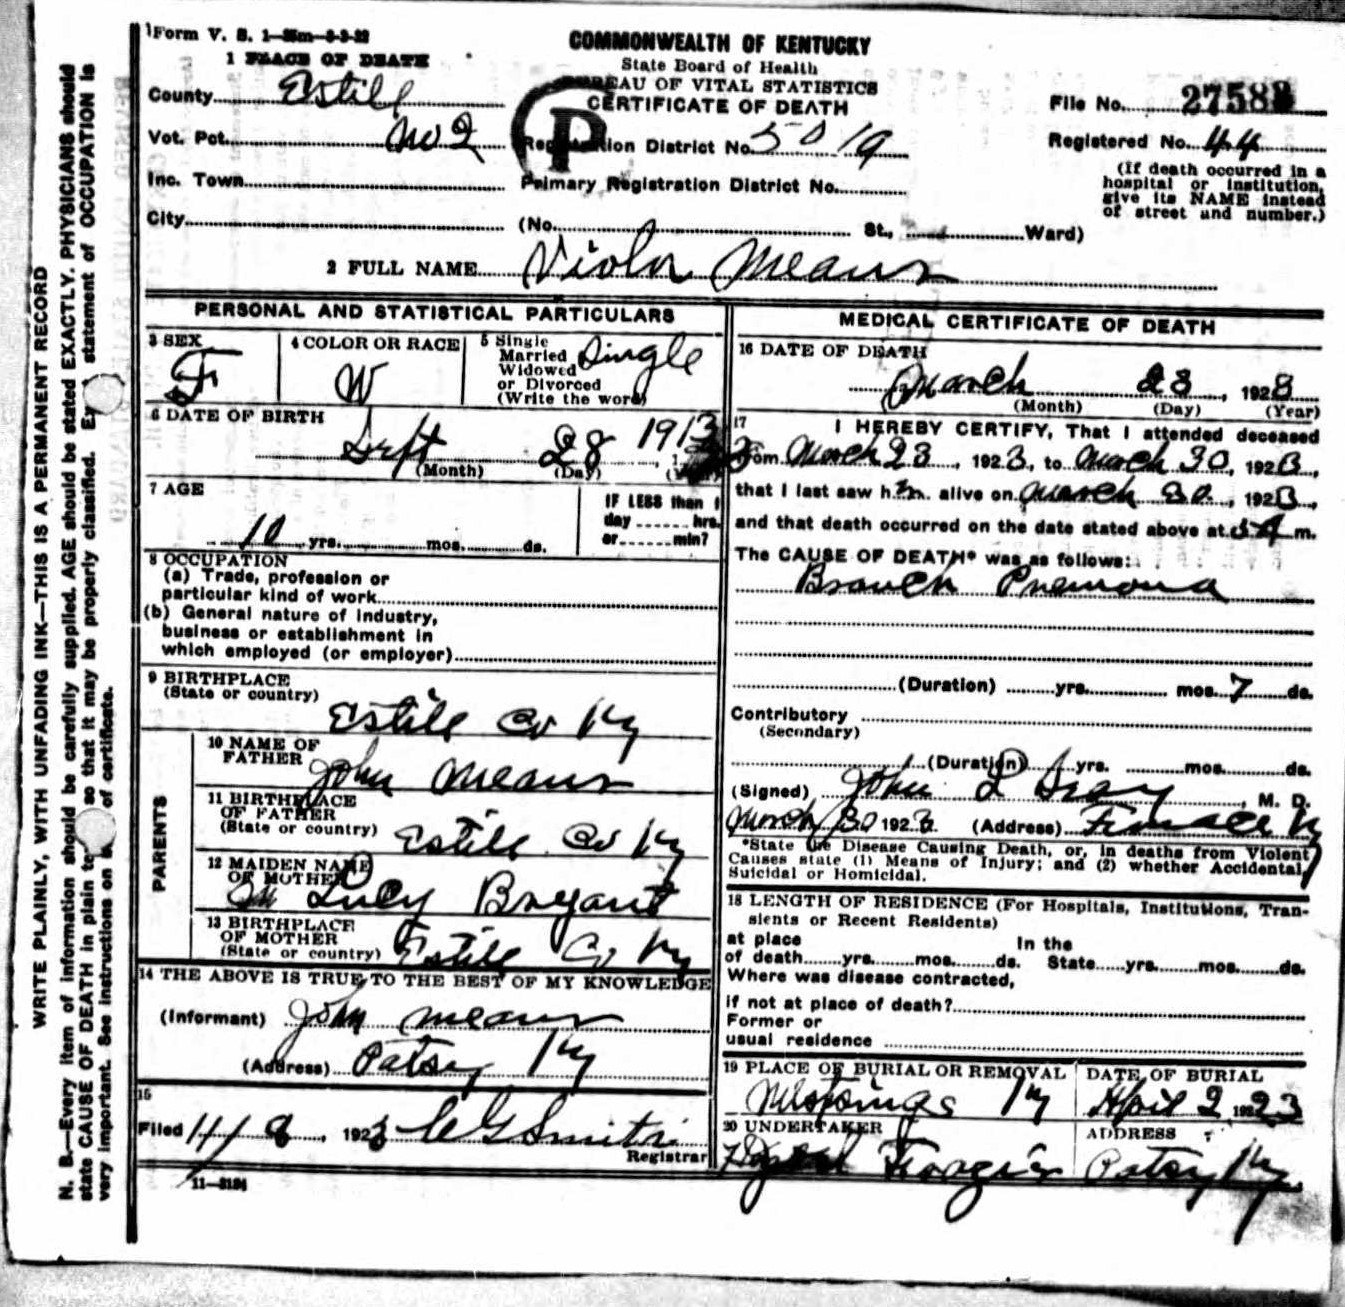 Form V. S. 1—25m—8-3-22
1 PLACE OF DEATH
COMMONWEALTH OF KENTUCKY
State Board of Health
BUREAU OF VITAL STATISTICS
CERTIFICATE OF DEATH
County Estill
File No. 2758
Vot. Pct. No 2
P
Registration District No. 5019
Registered No. 44
(If death occurred in a hospital or institution, give its NAME instead of street and number.)
Inc. Town
Primary Registration District No.
City
(No. St., Ward)
2 FULL NAME Viola Means
PERSONAL AND STATISTICAL PARTICULARS
3 SEX
F
4 COLOR OR RACE
W
5 Single
Married
Widowed
or Divorced
(Write the word)
Single
6 DATE OF BIRTH
Sept 28 1913
(Month) (Day) (Year)
7 AGE
10 yrs. mos. ds.
IF LESS than 1
day hrs.
or min?
8 OCCUPATION
(a) Trade, profession or
particular kind of work
(b) General nature of industry,
business or establishment in
which employed (or employer)
9 BIRTHPLACE
(State or country)
Estill Co Ky
PARENTS
10 NAME OF
FATHER
John Means
11 BIRTHPLACE
OF FATHER
(State or country)
Estill Co Ky
12 MAIDEN NAME
OF MOTHER
Lucy Bryant
13 BIRTHPLACE
OF MOTHER
(State or country)
Estill Co Ky
14 THE ABOVE IS TRUE TO THE BEST OF MY KNOWLEDGE
(Informant) John Means
(Address) Patsy Ky
15
Filed 11/8, 1923 C G Smith
Registrar
11—3184
MEDICAL CERTIFICATE OF DEATH
16 DATE OF DEATH
March 28, 1923
(Month) (Day) (Year)
17
I HEREBY CERTIFY, That I attended deceased
from March 23, 1923, to March 30, 1923,
that I last saw h alive on March 30, 1923,
and that death occurred on the date stated above at 5 A m.
The CAUSE OF DEATH* was as follows:
Bronch Pnemona
(Duration) yrs. mos. 7 ds.
Contributory
(Secondary)
(Duration) yrs. mos. ds.
(Signed) John L Gray, M. D.
March 30 1923. (Address) Furnace Ky
*State the Disease Causing Death, or, in deaths from Violent
Causes state (1) Means of Injury; and (2) whether Accidental,
Suicidal or Homicidal.
18 LENGTH OF RESIDENCE (For Hospitals, Institutions, Tran-
sients or Recent Residents)
at place
of death yrs. mos. ds.
In the
State yrs. mos. ds.
Where was disease contracted,
if not at place of death?
Former or
usual residence
19 PLACE OF BURIAL OR REMOVAL
Ky
DATE OF BURIAL
April 2, 1923
20 UNDERTAKER
ADDRESS
Patsy Ky
WRITE PLAINLY, WITH UNFADING INK—THIS IS A PERMANENT RECORD
N. B.—Every item of information should be carefully supplied. AGE should be stated EXACTLY. PHYSICIANS should
state CAUSE OF DEATH in plain so that it may be properly classified. statement of OCCUPATION is
very important. See instructions on of certificate.